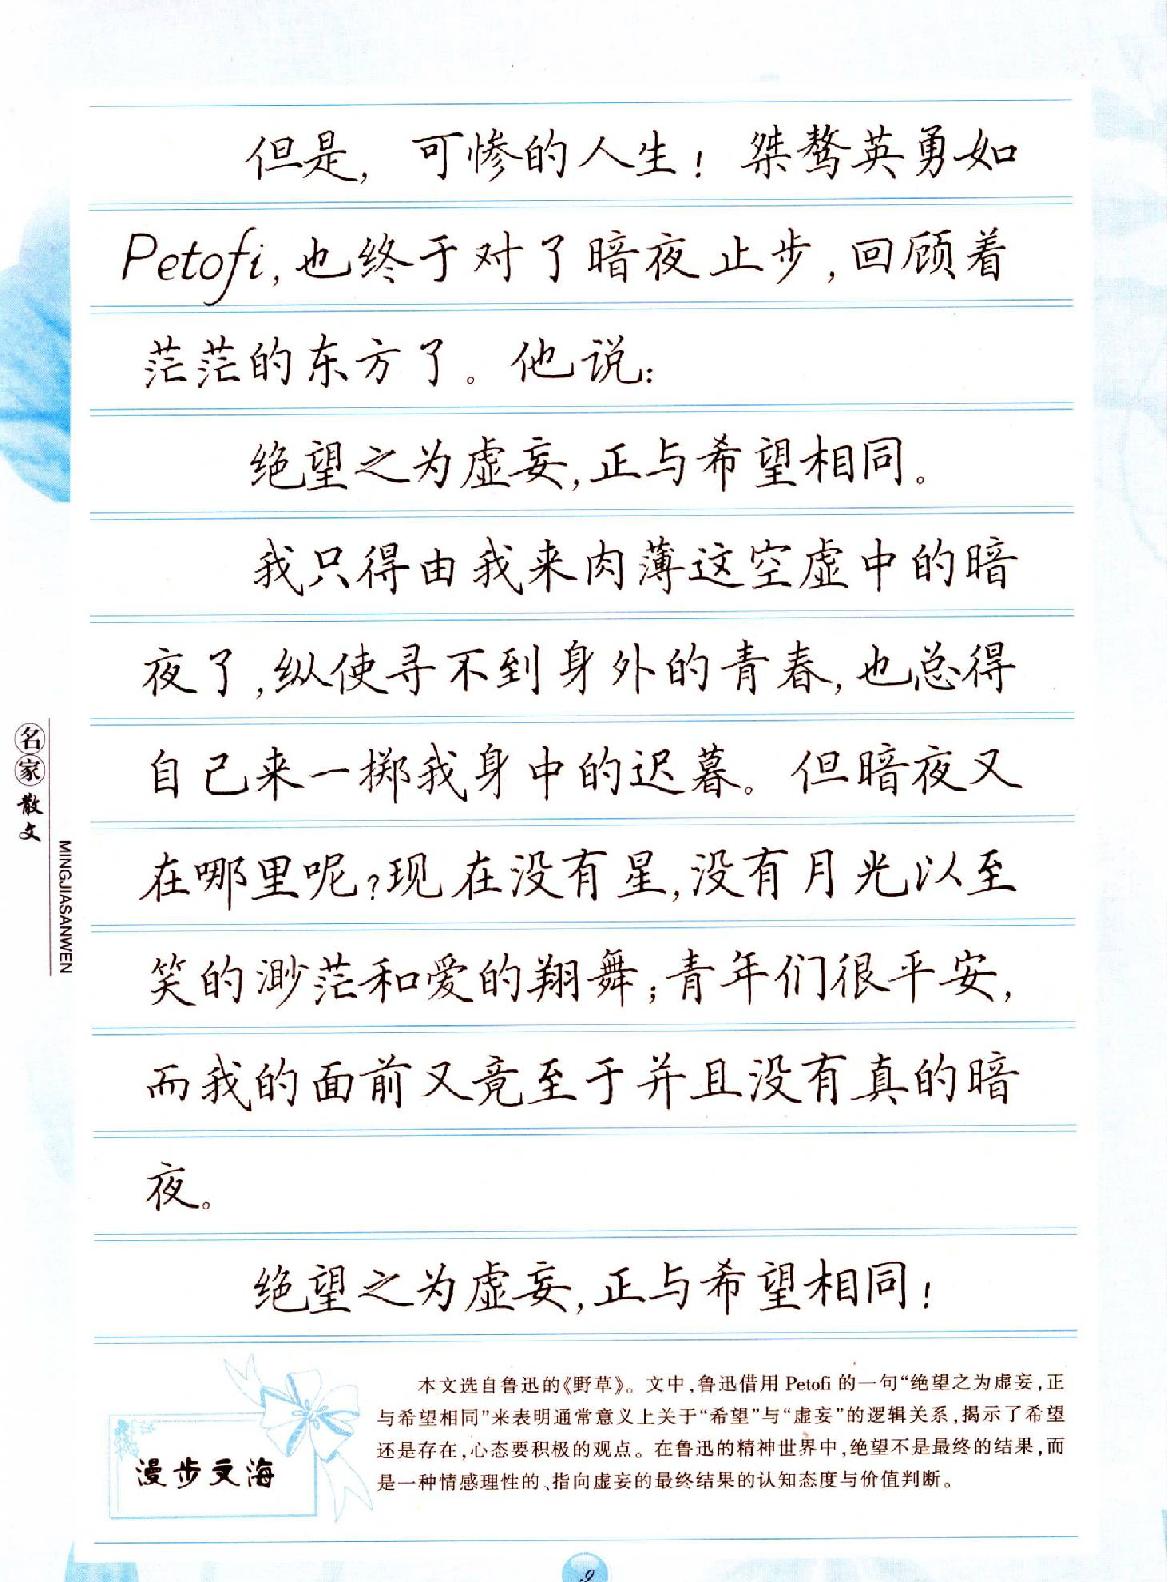 但是，可惨的人生！桀骜英勇如
Petofi，也终于对了暗夜止步，回顾着
茫茫的东方了。他说：
绝望之为虚妄，正与希望相同。
我只得由我来肉薄这空虚中的暗
夜了，纵使寻不到身外的青春，也总得
自己来一掷我身中的迟暮。但暗夜又
在哪里呢？现在没有星，没有月光以至
笑的渺茫和爱的翔舞；青年们很平安，
而我的面前又竟至于并且没有真的暗
夜。
绝望之为虚妄，正与希望相同！
名家散文
MINGJIASANWEN
漫步文海
本文选自鲁迅的《野草》。文中，鲁迅借用 Petofi 的一句“绝望之为虚妄，正
与希望相同”来表明通常意义上关于“希望”与“虚妄”的逻辑关系，揭示了希望
还是存在，心态要积极的观点。在鲁迅的精神世界中，绝望不是最终的结果，而
是一种情感理性的、指向虚妄的最终结果的认知态度与价值判断。